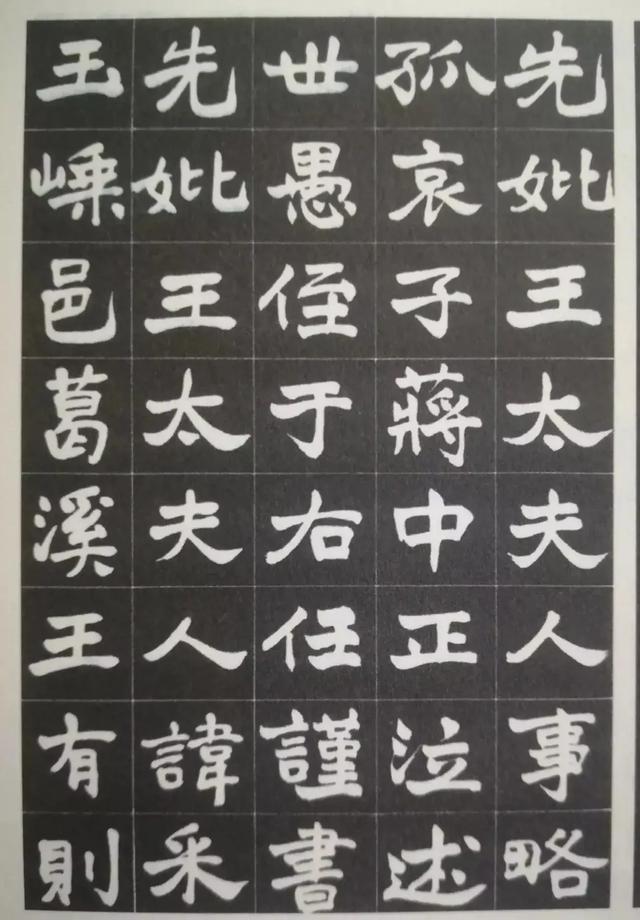 先妣王太夫人事略
孤哀子蔣中正泣述
世愚侄于右任謹書
先妣王太夫人諱采
玉嵊邑葛溪王有則